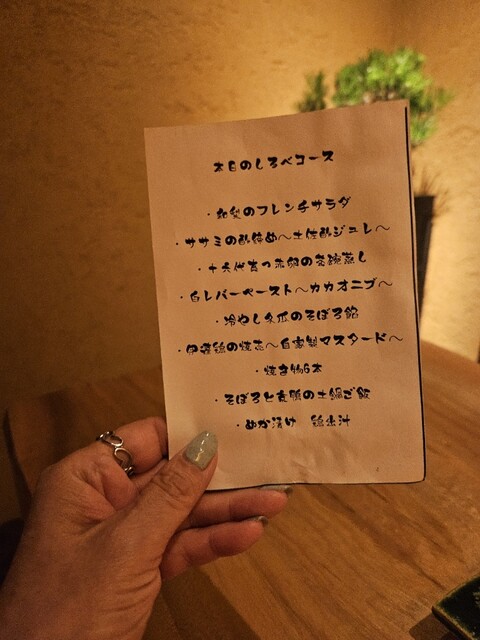 本日のしるべコース
・和梨のフレンチサラダ
・ササミの酢締め〜土佐酢ジュレ〜
・の茶碗蒸し
・白レバーペースト〜カカオニブ〜
・冷やし冬瓜のそぼろ餡
・伊達鶏の焼売〜自家製マスタード〜
・焼き物6本
・そぼろとの土鍋ご飯
・ぬか漬け　鶏出汁